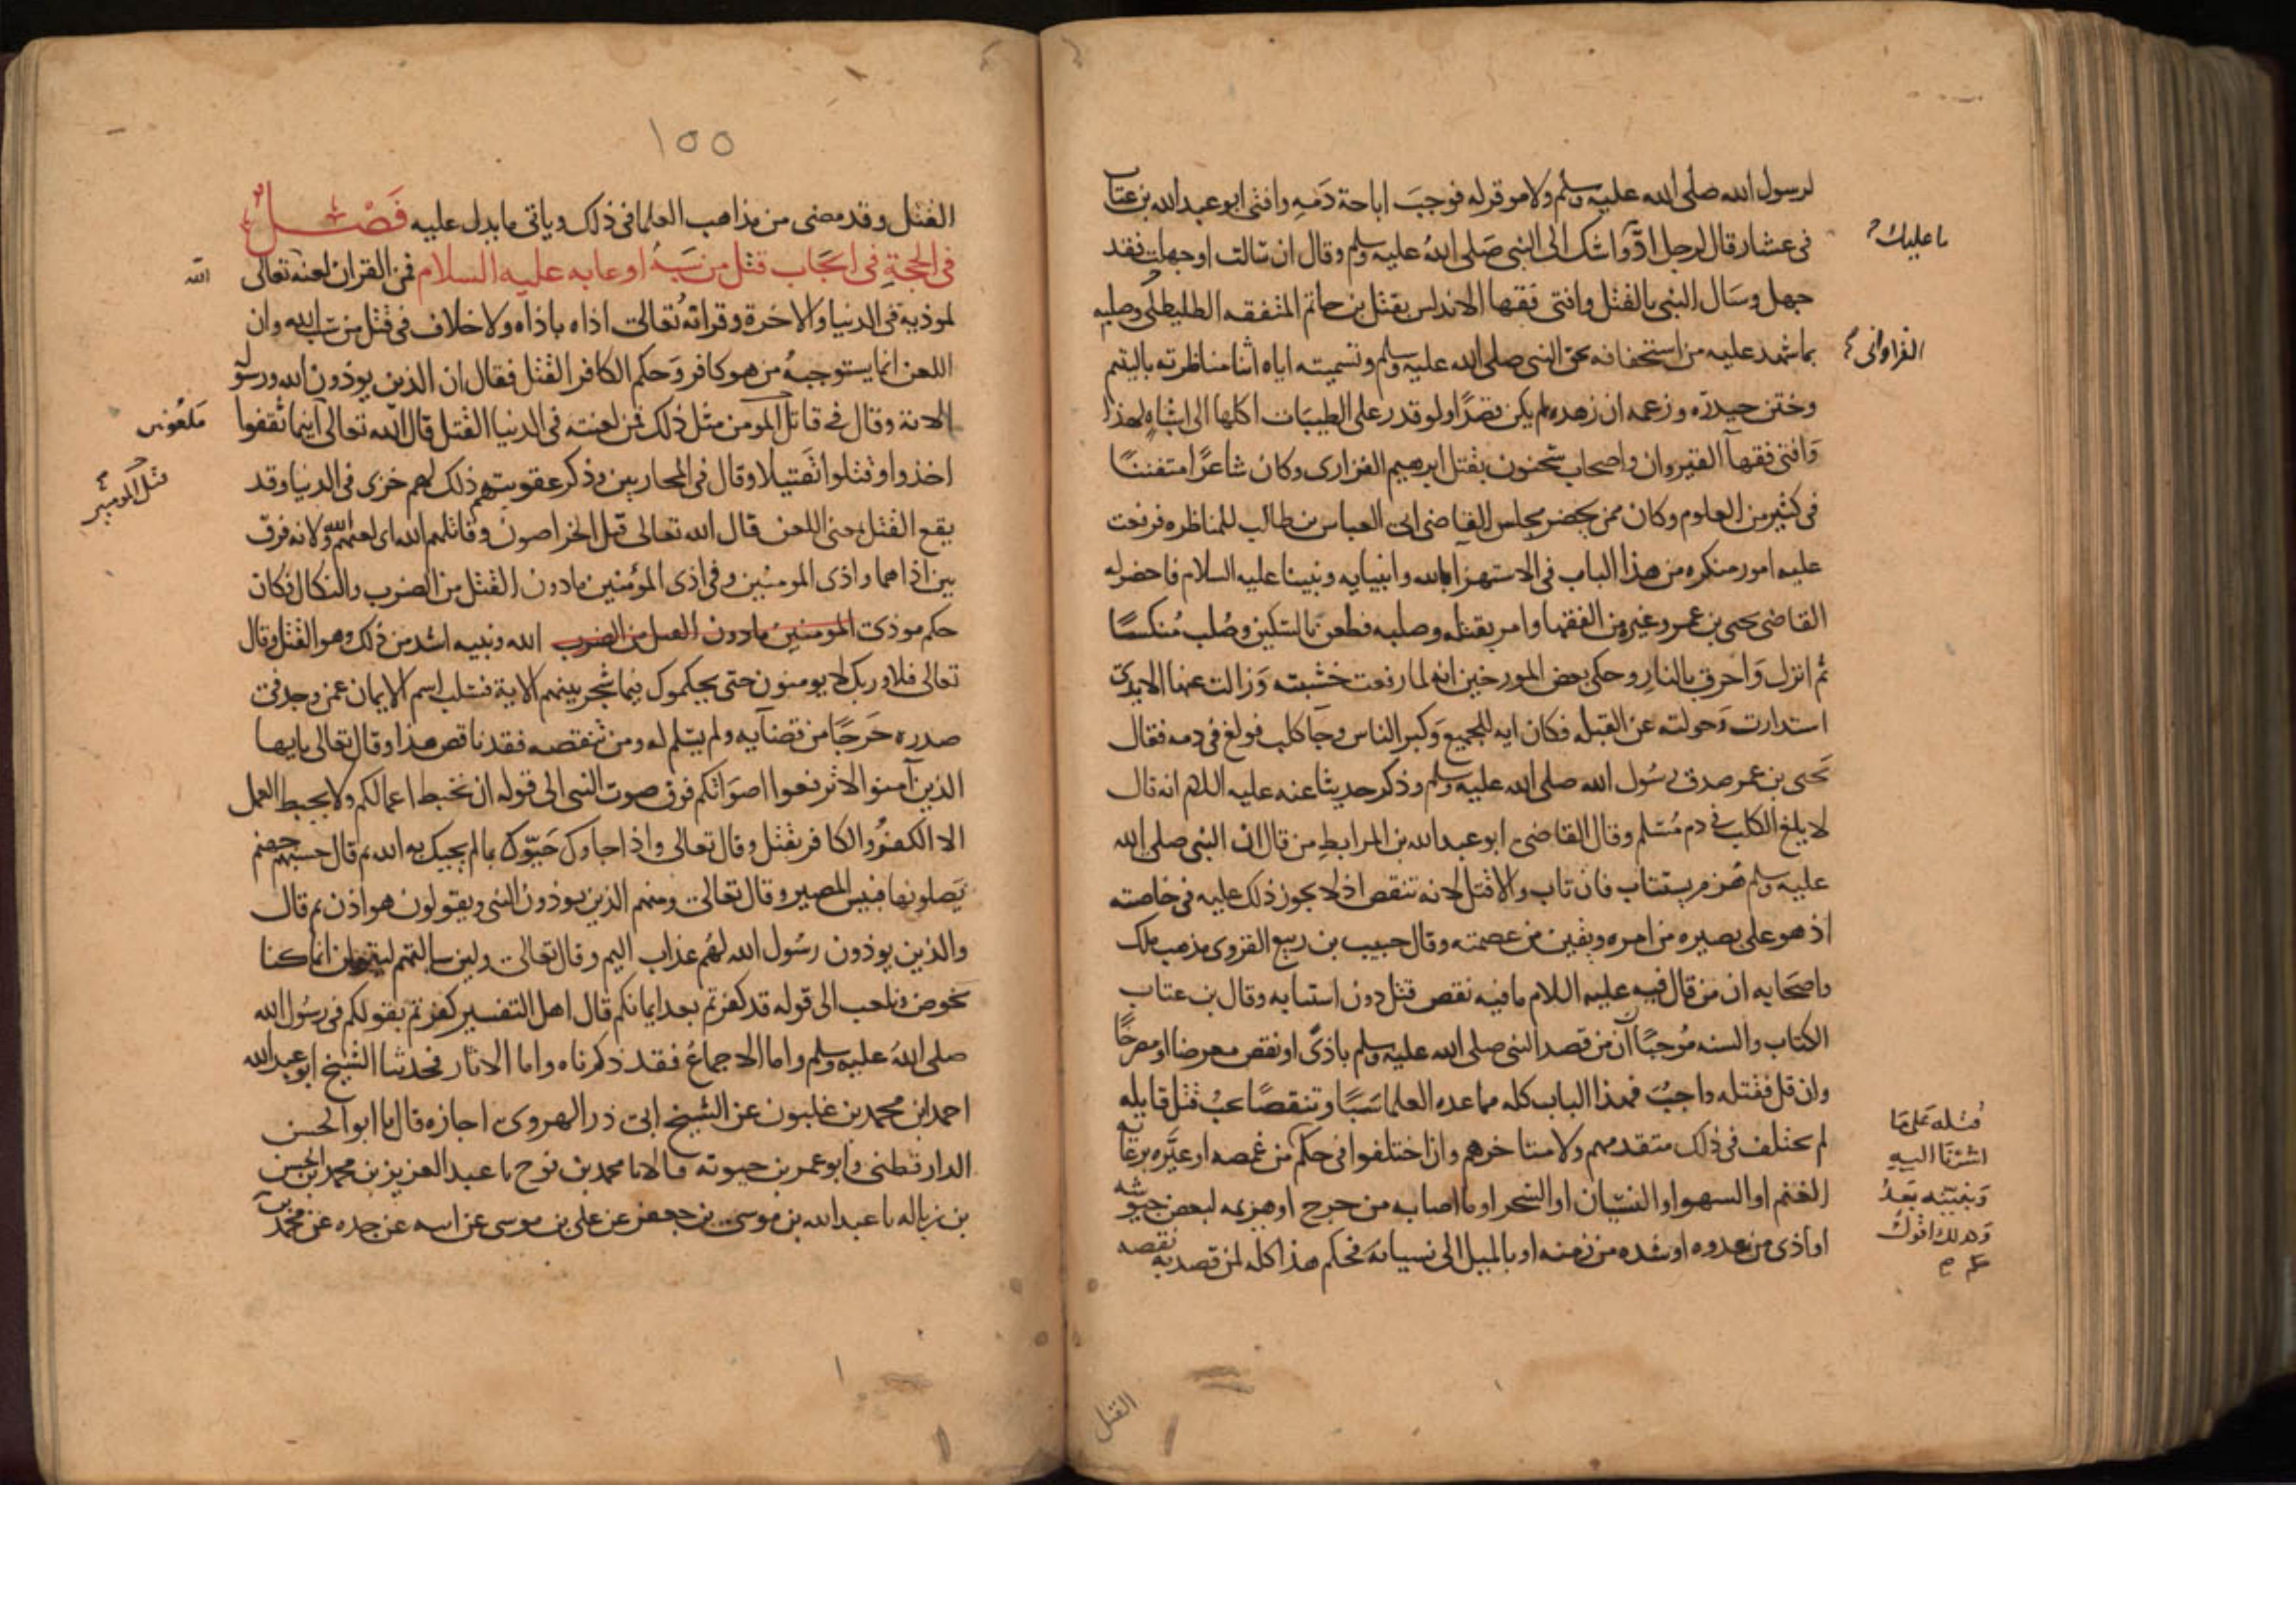 لرسول الله صلى الله عليه وسلم ولا موقر له فوجب اباحة دمه وافتى ابو عبد الله بن عتاب
فى عشار قال لرجل ادّ واشك الى النبى صَلى اللهُ عليه وسلم وقال ان سالت او جهلت فقد
ما عليك
جهل وسَال النبى بالقتل وافتى فقها الاندلس بقتل بن حاتم المتفقه الطليطلى وصلبه
بما شهد عليه من استخفافه بحق النبى صلى الله عليه وسلم وتسميته اياه اثنا مناظرته باليتيم
وختن حيدره وزعمه ان زهده لم يكن قصدًا ولو قدر على الطيبات اكلها الى اشباهٍ لهذا
وَافتى فقهآ القيروان واصحاب سحنون بقتل ابرهيم الفزارى وكان شاعرًا متفننًا
فى كثير من العلوم وكان ممن يحضر مجلس القاضى ابى العباس بن طالب للمناظره فرفعت
عليه امور منكره من هذا الباب فى الاستهزا بالله وانبيايه ونبينا عليه السلام فاحضر له
القاضى يحيى بن عمر وغيره من الفقها وامر بقتله وصلبه فطعن بالسكين وصُلب مُنكسًا
ثم انزل وَاحرق بالنارِ وحكى بعض المورخين انه لما رفعت خشبته وَزالت عنها الايدى
استدارت وَحولته عن القبله فكان ايه للجميع وَكبر الناس وجآ كلب فولغ فى دمه فقال
يَحيى بن عمر صدق رسُول الله صلى الله عليه وسلم وذكر حديثا عنه عليه السلام انه قال
لا يلغ الكلب فى دم مُسلم وقال القاضى ابو عبد الله بن المرابطِ من قال ان النبى صلى الله
عليه وسلم هُزم يستتاب فان تاب والا قتل لانه تنقص اذ لا يجوز ذلك عليه فى خاصته
اذ هو على بصيره من امره ويقين من عصمته وقال حبيب بن ربيع القروى مذهب ملك
واصحَابه ان من قال فيه عليه السلام ما فيه نقص قتل دون استتابه وقال بن عتاب
الكتاب والسنه مُوجبًا ان من قصد النبى صلى الله عليه وسلم باذىً او نقص معرضا او مصرحًا
وان قل فقتله واجبُ فهذا الباب كله مما عده العلما سَبًّا او تنقصًا يجبُ قتل قايله
لم يختلف فى ذلك متقدمهم ولا متاخرهم وان اختلفوا فى حكم من غمصه او عيَّره برعاية
قتله عَلى مَا
اشرنا اليه
وَنبينه بَعدُ
وَكذلك اقول
الغنم او السهو او النسيَان او السحر او ما اصابه من جرح او هزيمه لبعض جيوشه
او اذى من عدوه او شده من زمنه او بالميل الى نسيانه فحكم هذا كله لمن قصد به نقصه
القتل
١٥٥
القتل وقد مضى من مذاهب العلما فى ذلك وياتى ما يدل عليه فَصْل
فى الحجةِ فى ايجَاب قتل من سَبهُ او عابه عليه السلام فمن القران لعنه تعالى
الله
لموذيه فى الدنيا والاخرة وقرانه تعالى اذاه باذاه ولا خلاف فى قتل من سَب الله وان
اللعن انما يستوجبهُ من هو كافر وَحكم الكافر القتل فقال ان الذين يوذون الله ورسوله
الاية وقال فى قاتل المومن مثل ذلك فمن لعنته فى الدنيا القتل قال الله تعالى اينما ثقفوا
ملعُونين
اخذوا وقتلوا تقتيلا وقال فى المحاربين وذكر عقوبتهم ذلك لهم خزى فى الدنيا وقد
يقع القتل بمعنى اللعن قال الله تعالى قتل الخراصون وقاتلهم الله اى لعنهم الله ولانه فرق
بين اذاهما واذى المومنين وفى اذى المؤمنين مادون القتل من الضرب والنكال فكان
حكم موذى المومنين مادون القتل من الضرب الله ونبيه اشد من ذلك وهو القتل وقال
تعالى فلا وربك لا يومنون حتى يحكموك فيما شجر بينهم الاية فسلب اسم الايمان عمن وجد فى
صدره حَرجًا من قضآيه ولم يسلم له ومن تنقصه فقد ناقص هذا وقال تعالى يايها
الذين آمنوا لا ترفعوا اصوَاتكم فوق صوت النبى الى قوله ان تحبط اعمالكم ولا يحبط العمل
الا الكفرُ والكافر يقتل وقال تعالى واذا جاوك حَيّوك بما لم يحيك به الله ثم قال حسبهم جهنم
يَصلونها فبيس المصير وقال تعالى ومنهم الذين يوذون النبى ويقولون هو اذن ثم قال
والذين يوذون رسُول الله لهُم عذاب اليم وقال تعالى ولين سالتهم ليقولن انما كنا
نخوض ونلعب الى قوله قد كفرتم بعد ايمانكم قال اهل التفسير كفرتم بقولكم فى رسُول الله
صلى اللهُ عليه وسلم واما الاجماعُ فقد ذكرناه واما الاثار فحدثنا الشيخ ابو عبد الله
احمد ابن محمد بن غلبون عن الشيخ ابى ذر الهروى اجازه قال ما ابو الحسن
الدارقطنى وابو عمر بن حيوته قالا نا محمد بن نوح نا عبد العزيز بن محمد بن الحسن
بن زباله نا عبد الله بن موسى بن جعفر عن على بن موسى عن ابيه عن جده عن محمد بن